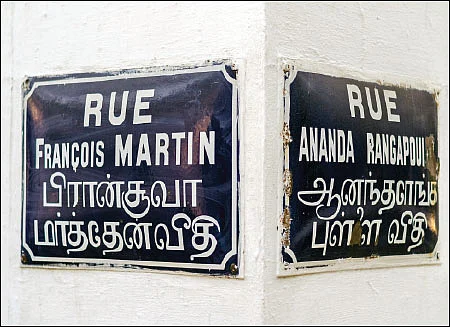 RUE
FRANÇOIS MARTIN
பிரான்சுவா
மர்த்தேன்வீதி
RUE
ANANDA
ஆனந்தரங்க
புள்ளை வீதி